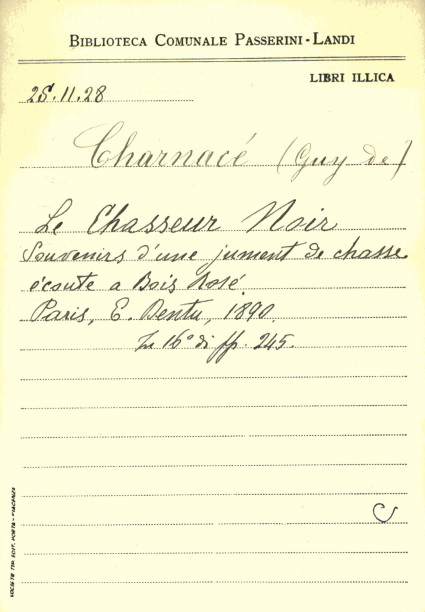 BIBLIOTECA COMUNALE PASSERINI-LANDI
LIBRI ILLICA
25.11.28
Charnacé (Guy de)
Le Chasseur Noir
Souvenirs d'une jument de chasse
écoute a Bois Rosé.
Paris, E. Dentu, 1890.
In 16° di ff. 245.